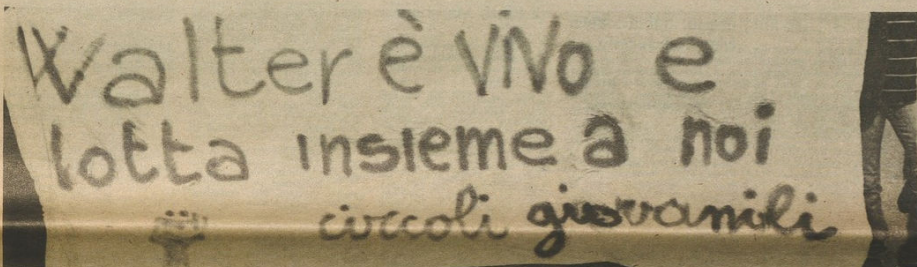 Walter è ViVo e
lotta insieme a noi
circoli giovanili